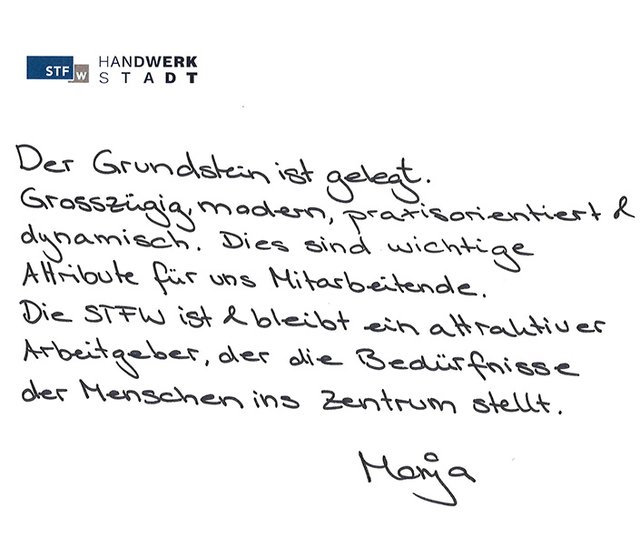 STFW HANDWERK
STADT
Der Grundstein ist gelegt.
Grosszügig, modern, praxisorientiert &
dynamisch. Dies sind wichtige
Attribute für uns Mitarbeitende.
Die STFW ist & bleibt ein attraktiver
Arbeitgeber, der die Bedürfnisse
der Menschen ins Zentrum stellt.
Monja